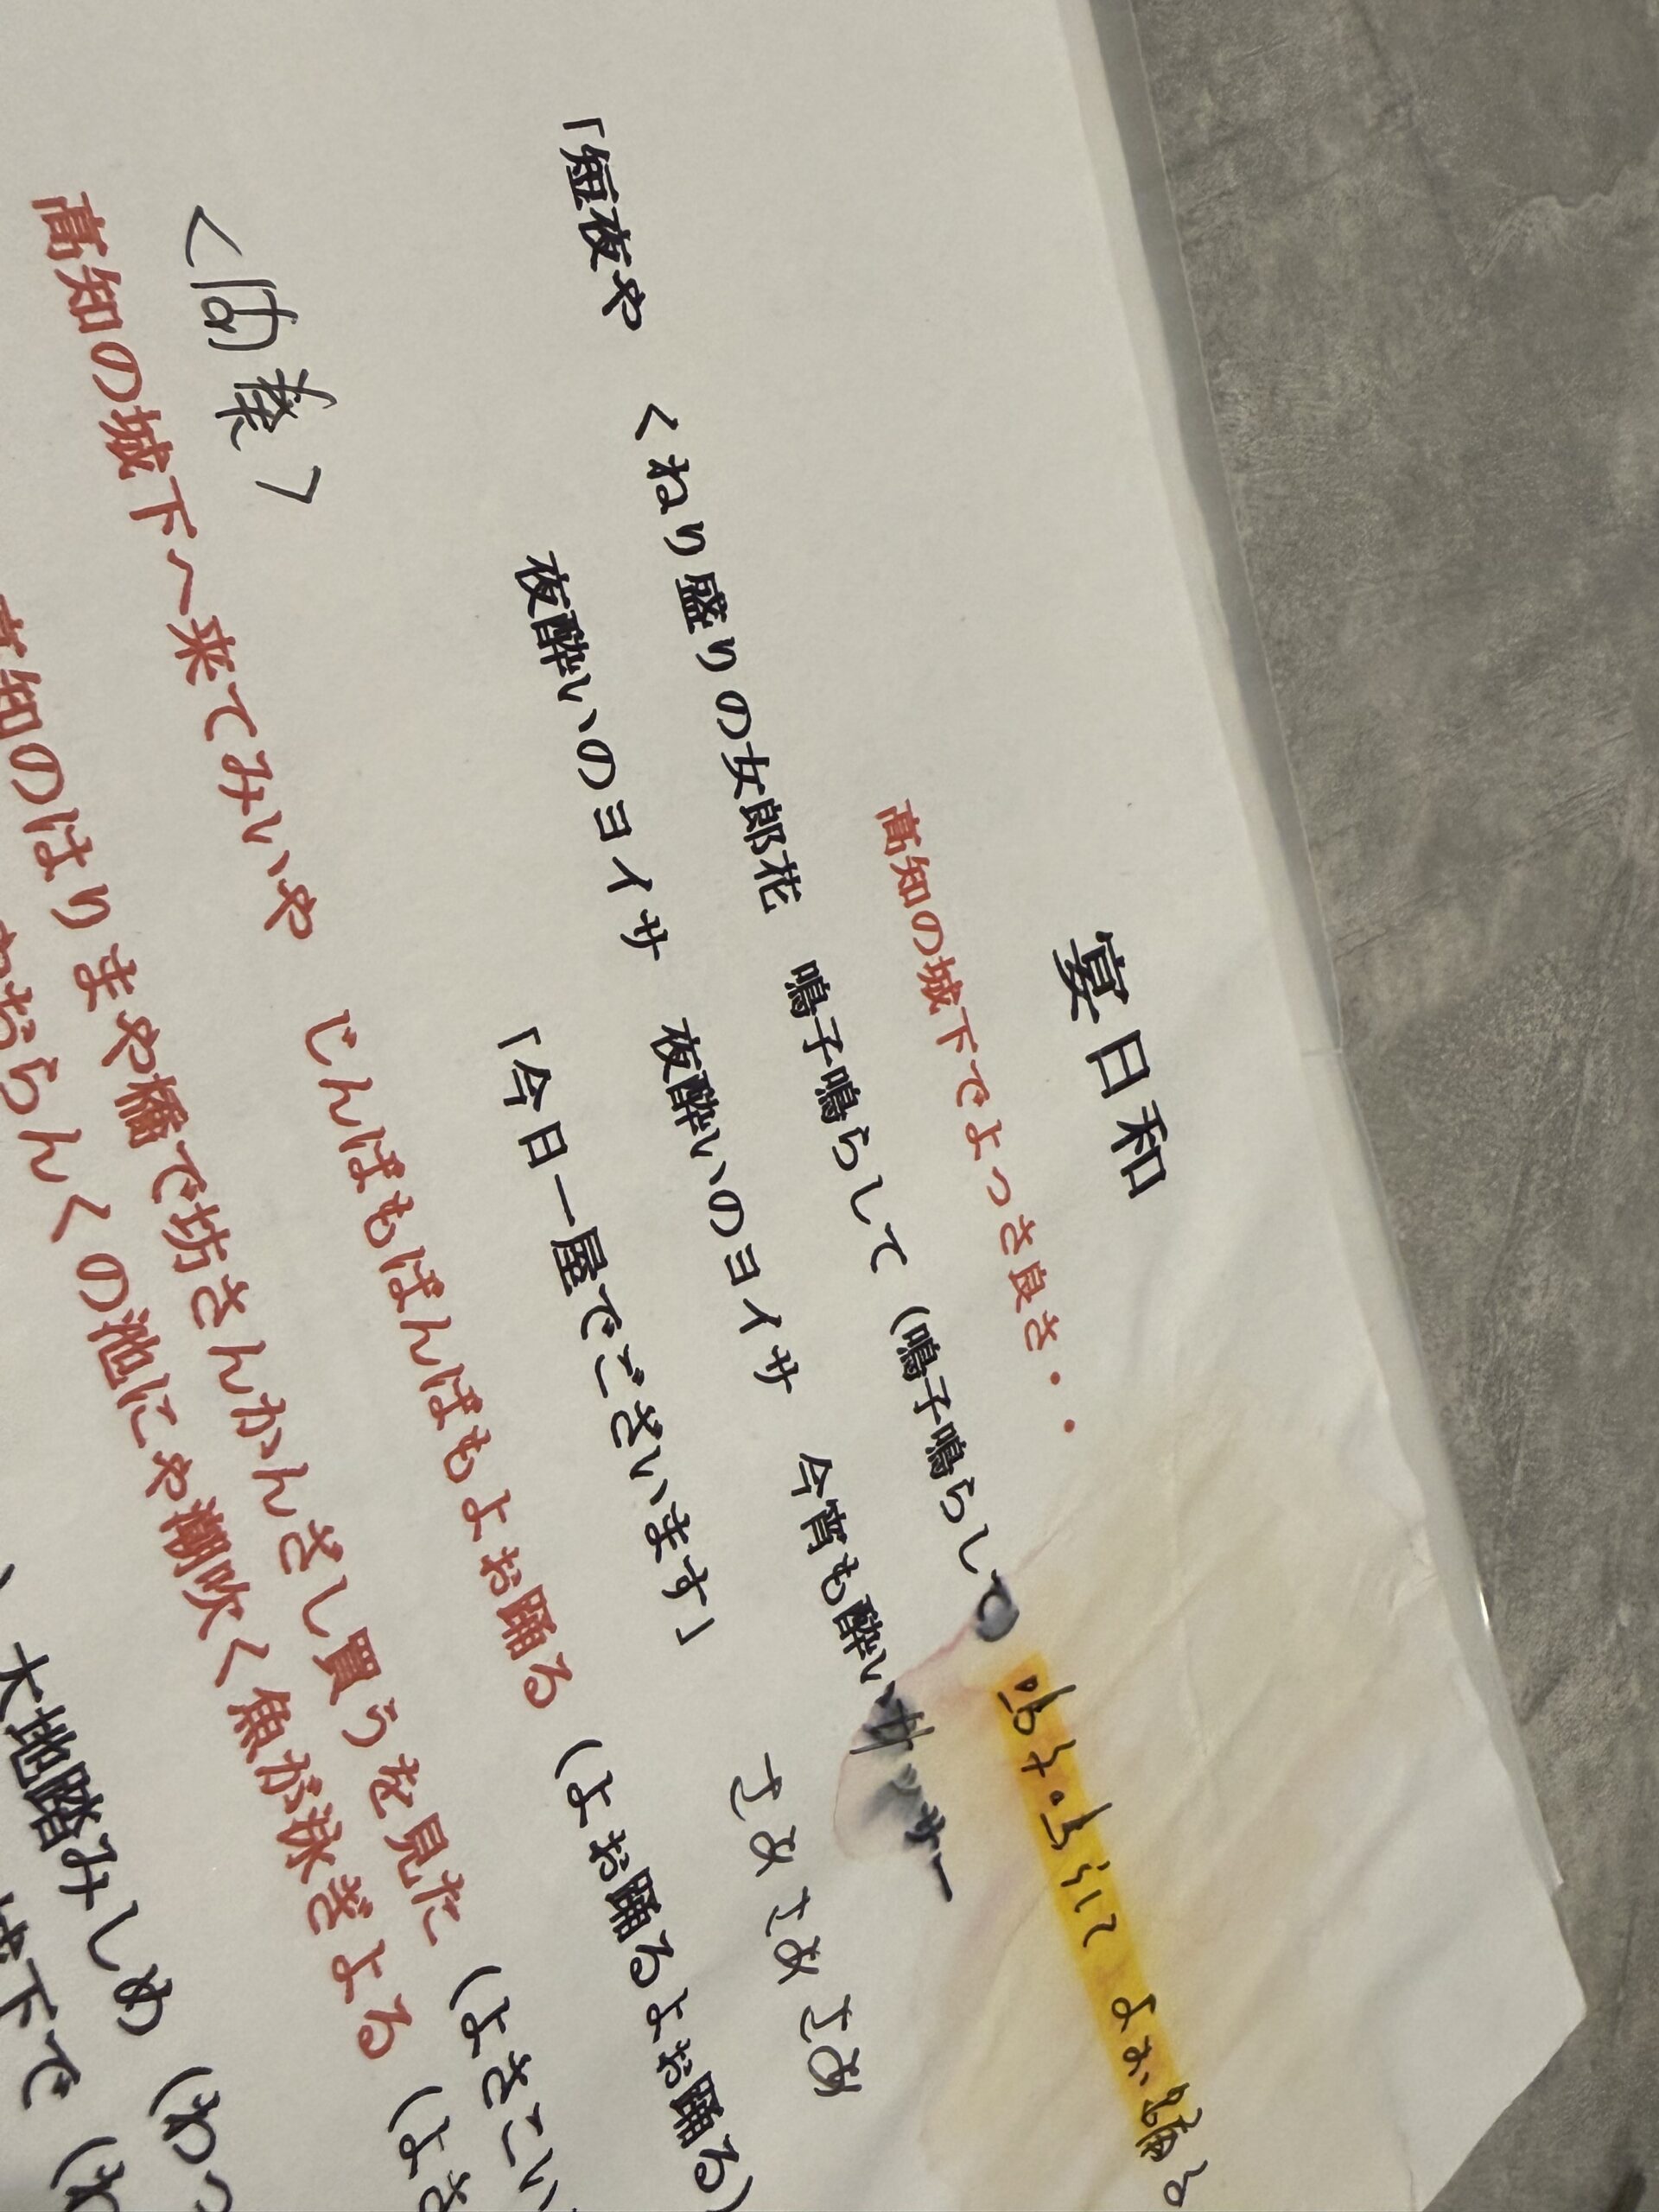 宴日和
高知の城下でよっさ良き・・
「短夜や くねり盛りの女郎花 鳴子鳴らして (鳴子鳴らして 鳴子鳴らして よお踊る
夜酔いのヨイサ 夜酔いのヨイサ 今宵も酔いサッサー
「今日一屋でございます」 さぁさぁさぁ
高知の城下へ来てみいや じんばもばんばもよお踊る (よお踊るよお踊る)
高知のはりまや橋で坊さんかんざし買うを見た (よさこい
おらんくの池にや潮吹く魚が泳ぎよる (よさ
大地踏みしめ (わっ
下で (わ